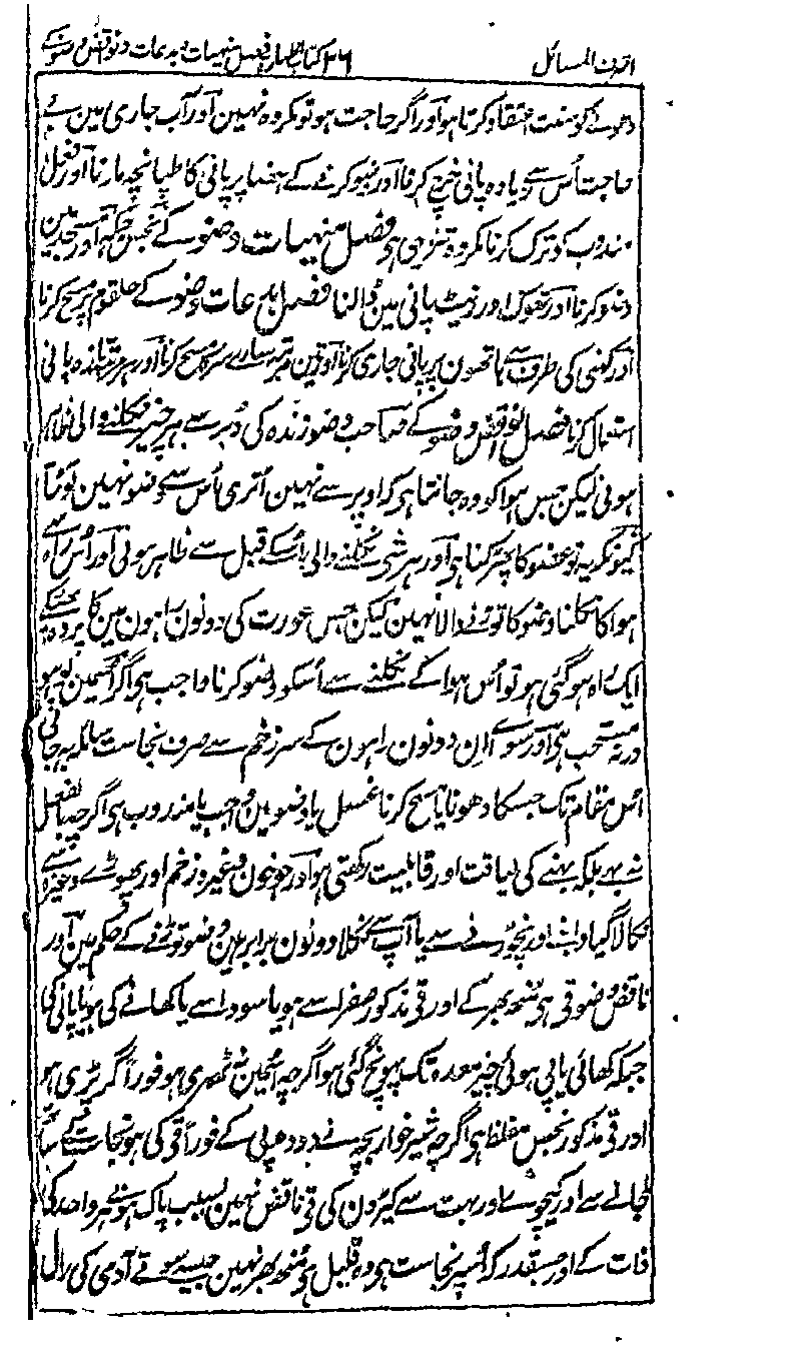 اشرف المسائل ۳۶ کتاب الطہارۃ فصل منہیات و بدعات و نواقض وضو کے
دھونے کو سنت اعتقاد کرتا ہو اور اگر حاجت ہو تو مکروہ نہین اور آب جاری مین بے
حاجت اُس سے زیادہ پانی خرچ کرنا اور وضو کرنے کے اعضا پر پانی کا طپانچہ مارنا اور فعل
مندوب کو ترک کرنا مکروہ تنزیہی ہو فصل منہیات وضو کے نجس جگہ اور مسجد مین
وضو کرنا اور تھوک اور رینٹ پانی مین ڈالنا فصل بدعات وضو کے حلقوم پر مسح کرنا
اور کہنی کی طرف سے ہاتھون پر پانی جاری کرنا اور تین مرتبہ سارے سر کا مسح کرنا اور ہر مرتبہ تازہ پانی
استعمال کرنا فصل نواقض وضو کے صاحب وضو زندہ کی دُبر سے ہر چیز نکلنے والی ظاہر
ہوئی لیکن جس ہوا کو وہ جانتا ہو کہ اوپر سے نہین اُتری اُس سے وضو نہین ٹوٹتا
کیونکہ یہ تو عضو کا پھڑکنا ہی اور ہر شی نکلنے والی اُسکے قبل سے ظاہر ہوئی اور اُس راہ سے
ہوا کا نکلنا وضو کا توڑنے والا نہین لیکن جس عورت کی دونون راہون مین کا پردہ پھٹکے
ایک راہ ہو گئی ہو تو اُس ہوا کے نکلنے سے اُسکو وضو کرنا واجب ہی اگر اُسمین بو ہو
ورنہ مستحب ہی اور سوے اِن دونون راہون کے سر زخم سے صرف نجاست سائلہ بہ جانی
اُس مقام تک جسکا دھونا یا مسح کرنا غسل یا وضو مین واجب یا مندوب ہی اگرچہ بالفعل
نہ بہے بلکہ بہنے کی لیاقت اور قابلیت رکھتی ہو اور جو خون وغیرہ زخم اور پھوڑے وغیرہ سے
نکالا گیا دابنے اور نچوڑنے سے یا آپ سے نکلا دونون برابر ہین وضو توڑنے کے حکم مین اور
ناقض وضو قی ہی مُنھ بھر کے اور قی مذکور صفرا سے ہو یا سودا سے یا کھانے کی ہو یا پانی کی
جبکہ کھائی یا پی ہوئی چیز معدہ تک پہونچ گئی ہو اگرچہ اُسمین نہ ٹھہری ہو فوراً گر پڑی ہو
اور قی مذکور نجس مغلظ ہی اگرچہ شیر خوار بچہ نے دودھ پی کے فوراً قی کی ہو نجاست کے
ملجانے سے اور کیچوے اور بہت سے کیڑون کی قی ناقض نہین بسبب پاک ہونے ہر واحد کی
ذات کے اور جسقدر کہ اُسپر نجاست ہی وہ قلیل ہی مُنھ بھر نہین جیسے سوتے آدمی کی رال